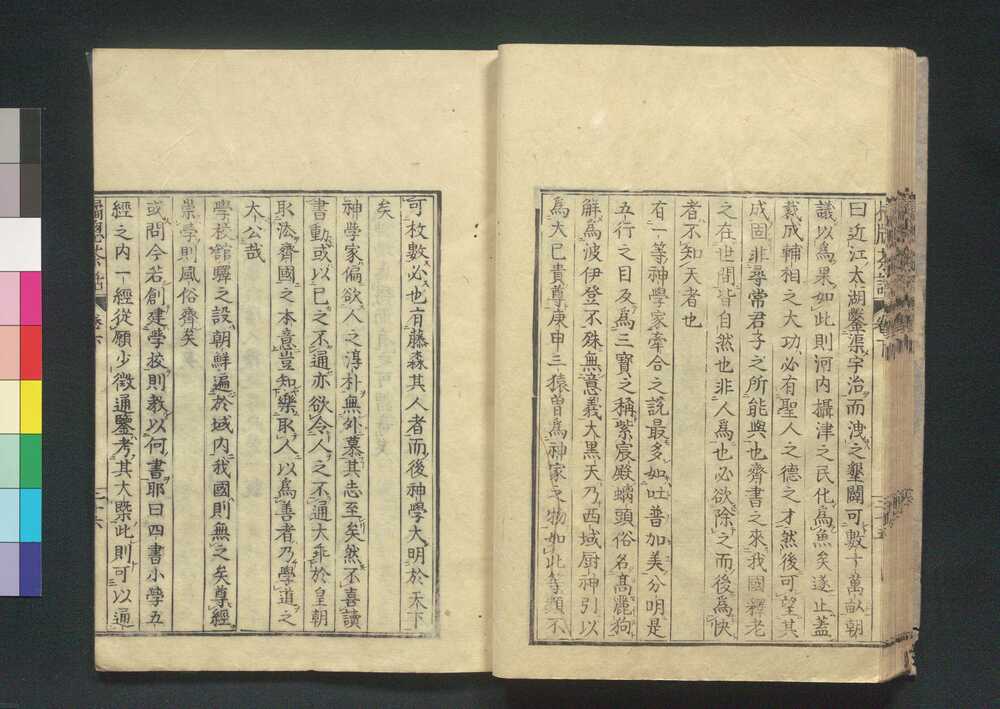 曰近江太湖鑿渠宇治而洩之墾闢可數十萬畝朝
議以為果如此則河内攝津之民化為魚矣遂止蓋
裁成輔相之大功必有聖人之德之才然後可望其
成固非尋常君子之所能與也齊書之來我國釋老
之在世間皆自然也非人為也必欲除之而後為快
者不知天者也
有一等神學家牽合之說最多如吐普加美分明是
五行之目及為三寶之稱紫宸殿螭頭俗名高麗狗
解為波伊登不殊無意義大黑天乃西域厨神引以
為大已貴尊庚申三猿曽為神家之物如此等類不
可枚數必也有藤森其人者而後神學大明於天下
矣
神學家偏欲人之淳朴無外慕其志至矣然不喜讀
書動或以已之不通亦欲令人之不通大乖於皇朝
取法齊國之本意豈知樂取人以為善者乃學道之
大公哉
學校舘驛之設朝鮮遍於域内我國則無之矣尊經
崇學則風俗齊矣
或問今若創建學校則教以何書耶曰四書小學五
經之内一經從願少微通鑒考其大槩此則可以通
橘窓茶話
卷下
三十六